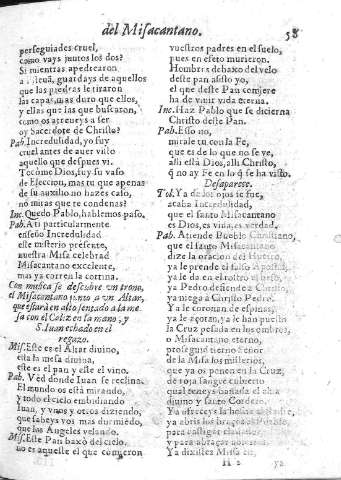 del Misacantano. 58
perseguiades cruel,
como vays juntos los dos?
Si mientras apedrearon
a guardays de aquellos
que las piedras le tiraron
las capas, mas duro que ellos,
y ellas que las buscaron,
como os atreueys a ser
oy Sacerdote de Christo?
Pab. Incredulidad, yo fuy
cruel antes de auer visto
aquello que despues vi.
Tocòme Dios, fuy su vaso
de Eleccion, mas tu que apenas
de su auxilio no hazes caso,
no miras que te condenas?
Inc. Quedo Pablo, hablemos paso.
Pab. A ti particularmente
enseño Incredulidad
este misterio presente,
nuestra Misa celebrad
Misacantano excelente,
mas ya corren la cortina.
Con musica se descubre vn trono,
el Misacantano junto a vn Altar,
que estarà en alto sentado a la me-
sa con el Caliz en la mano, y
S. Iuan echado en el
regazo.
Mis. Este es el Altar diuino,
esta la mesa diuina,
este es el pan y este el vino.
Pab. Ved donde Iuan se reclina.
El mundo os està mirando,
y todo el cielo embidiando
Iuan, y vnos y otros diziendo,
que sabeys vos mas durmiẽdo,
que las Angeles velando.
Mis. Este Pan baxò del cielo,
no es aquelle el que comieron
vuestros padres en el suelo,
pues en esero murieron.
Hombre debaxo del velo
deste pan asisto yo,
el que deste Pan comiere
ha de viuir vida eterna.
Inc. Haz Pablo que se dicierna
Christo deste Pan.
Pab. Esso no,
mirale tu con la Fe,
que es de lo que no se ve,
alli està Dios, alli Christo,
q̃ no ay Fe en lo q̃ se ha visto.
Desaparece.
Tod. Ya de los ojos se fue,
acaba Incredulidad,
que el santo Misacantano
es Dios, es vida, es verdad.
Pab. Atiende Pueblo Christiano,
que el santo Misacantano
dize la oracion del Huerto,
ya le prende el falso Apostol,
ya le da en el rostro el beso,
ya Pedro defiende a Christo,
ya niega a Christo Pedro.
Ya le coronan de espinas,
ya le açotan, ya le han puesto
la Cruz pesada en los ombros,
o Misacantano eterno,
proseguid tierno señor
de la Misa los misterios,
que ya os ponen en la Cruz,
de roja sangre cubierto
qual teneys bañada el alta
diuino y santo Cordero.
Ya ofreceys la hostia al Padre,
ya abris los braços
para castigar
y para abraçar
Ya dixistes Misa
H 2 ya